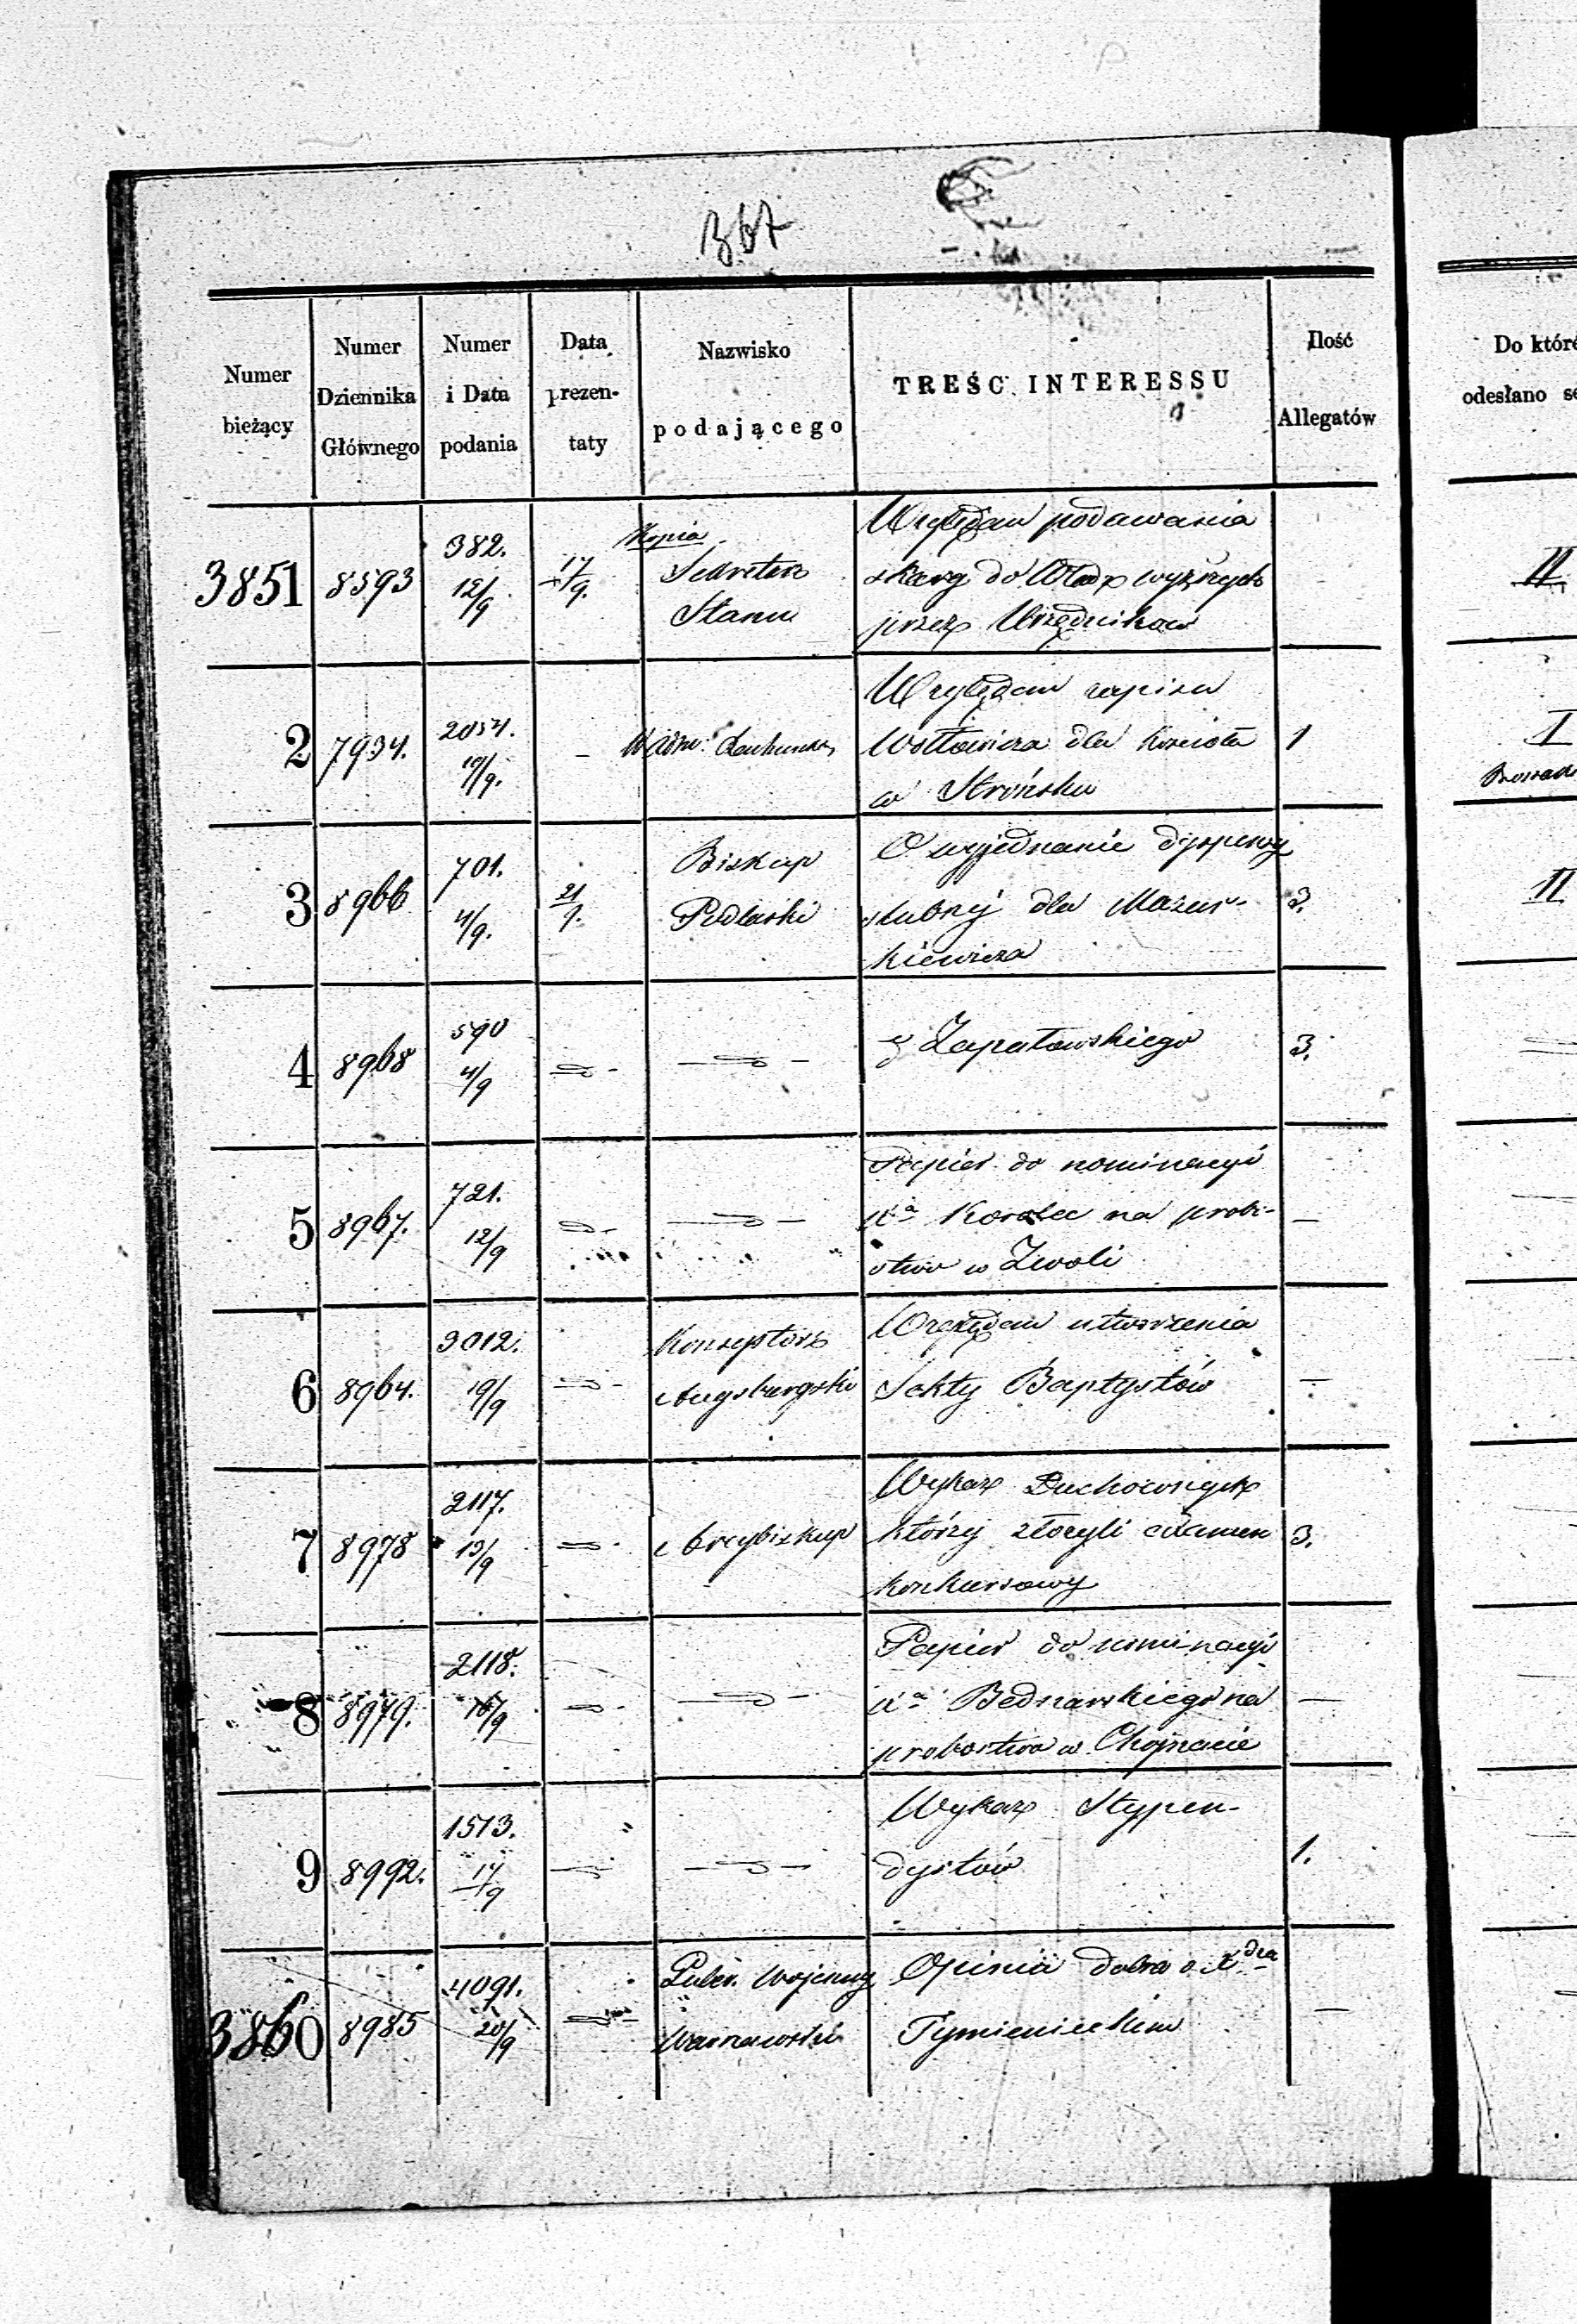 367
Numer bieżący
Numer Dziennika Głównego
Numer i Data podania
Data prezentaty
Nazwisko podającego
TREŚC INTERESSU
Ilość Allegatów
Do któré
odesłano se
3851 8593 382. 12/9 17/9. Kopia
Sekretarz
Stanu
Względem podawania
skarg do Władz wyższych
przez Urzędników
II
2 7934. 2054. 19/9. –
Względem zapisu
Wołłowicza dla kościoła
w Strońsku
1
I
3 8966 701. 4/9. 21/9.
Biskup
Podlaski
O wyjednanie dyspensy
ślubnej dla Mazur-
kiewicza
3.
II
4 8968 590 4/9
Zapałowskiego
3.
5 8967. 721. 12/9
Papier do nominacyi
Xa Korolec na probo-
stwo w Zwoli
–
6 8964. 3012. 19/9
Konsystorz
Augsburgski
Względem utworzenia
Sekty Baptystów
–
7 8978 2117. 13/9
Arcybiskup
Wykaz Duchownych
którzy złożyli examen
konkursowy
3.
8 8979. 2118. 16/9
Papier do nominacyi
Xa Bednarskiego na
probostwo w Chojnacie
–
9 8992. 1513. 17/9
Wykaz Stypen-
dystów
1.
3860 8985 4091. 20/9
Guber. Wojenny
Warszawski
Opinia dobra o Xdzu
Tymienieckim
–